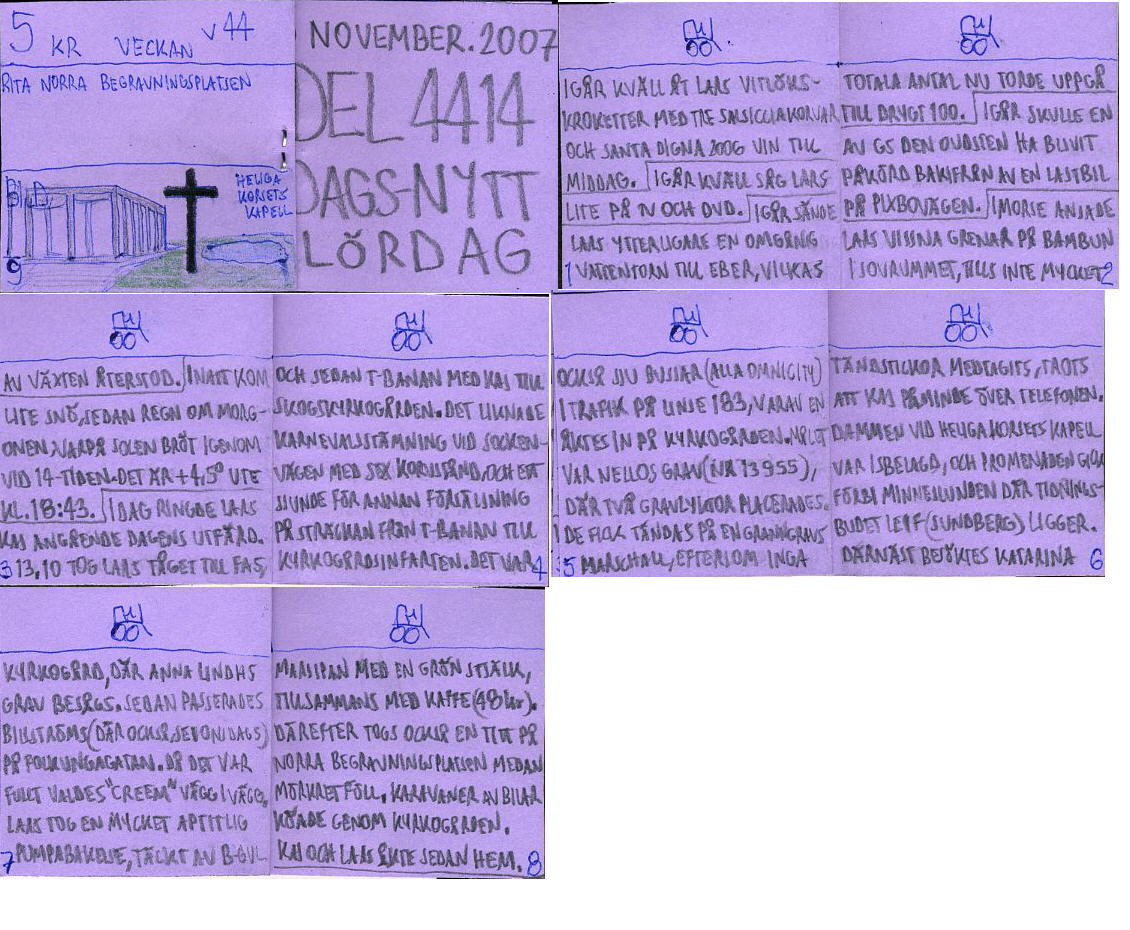 5 KR VECKAN V 44
RITA NORRA BEGRAVNINGSPLATSEN
HELIGA
KORSETS
KAPELL
9
NOVEMBER. 2007
DEL 4414
DAGS-NYTT
LÖRDAG
IGÅR KVÄLL ÅT LARS VITLÖKS-
KROKETTER MED TRE SALSICCIAKORVAR
OCH SANTA DIGNA 2006 VIN TILL
MIDDAG. IGÅR KVÄLL SÅG LARS
LITE PÅ TV OCH DVD. IGÅR SÄNDE
LARS YTTERLIGARE EN OMGÅNG
1 VATTENTORN TILL EBER, VILKAS
TOTALA ANTAL NU TORDE UPPGÅ
TILL DRYGT 100. IGÅR SKULLE EN
AV GS DEN OVDSTEN HA BLIVIT
PÅKÖRD BAKIFRÅN AV EN LASTBIL
PÅ PIXBOVÄGEN. IMORSE ANSADE
LARS VISSNA GRENAR PÅ BAMBUN
I SOVRUMMET, TILLS INTE MYCKET 2
AV VÄXTEN ÅTERSTOD. INATT KOM
LITE SNÖ, SEDAN REGN OM MORG-
ONEN, VARPÅ SOLEN BRÖT IGENOM
VID 14-TIDEN. DET ÄR +4,5° UTE
KL. 18:43. IDAG RINGDE LARS
KAJ ANGÅENDE DAGENS UTFÄRD.
3 13,10 TOG LARS TÅGET TILL FAS,
OCH SEDAN T-BANAN MED KAJ TILL
SKOGSKYRKOGÅRDEN. DET LIKNADE
KARNEVALSSTÄMNING VID SOCKEN-
VÄGEN MED SEX KORVSTÅND, OCH ETT
SJUNDE FÖR ANNAN FÖRSÄLJNING
PÅ STRÄCKAN FRÅN T-BANAN TILL
KYRKOGÅRDSINFARTEN. DET VAR 4
OCKSÅ SJU BUSSAR (ALLA OMNICITY)
I TRAFIK PÅ LINJE 183, VARAV EN
ÅKTES IN PÅ KYRKOGÅRDEN. MÅLET
VAR NELLOS GRAV (NR 13955),
DÄR TVÅ GRAVLYKTOR PLACERADES.
DE FICK TÄNDAS PÅ EN GRANNGRAVS
5 MARSCHALL, EFTERSOM INGA
TÄNDSTICKOR MEDTAGITS, TROTS
ATT KAJ PÅMINDE ÖVER TELEFONEN.
DAMMEN VID HELIGA KORSETS KAPELL
VAR ISBELAGD, OCH PROMENADEN GICK
FÖRBI MINNESLUNDEN DÄR TIDNINGS-
BUDET LEIF (SUNDBERG) LIGGER.
DÄRNÄST BESÖKTES KATARINA 6
KYRKOGÅRD, DÄR ANNA LINDHS
GRAV BESÅGS. SEDAN PASSERADES
BILLSTRÖMS (DÄR OCKSÅ, SEVONIDAGS)
PÅ FOLKUNGAGATAN. DÅ DET VAR
FULLT VALDES "CREEM" VÄGG I VÄGG,
LARS TOG EN MYCKET APTITLIG
7 PUMPABAKELSE, TÄCKT AV B-GUL
MARSIPAN MED EN GRÖN STJÄLK,
TILLSAMMANS MED KAFFE (48 kr).
DÄREFTER TOGS OCKSÅ EN TITT PÅ
NORRA BEGRAVNINGSPLATSEN MEDAN
MÖRKRET FÖLL. KARAVANER AV BILAR
KÖADE GENOM KYRKOGÅRDEN.
KAJ OCH LARS ÅKTE SEDAN HEM. 8